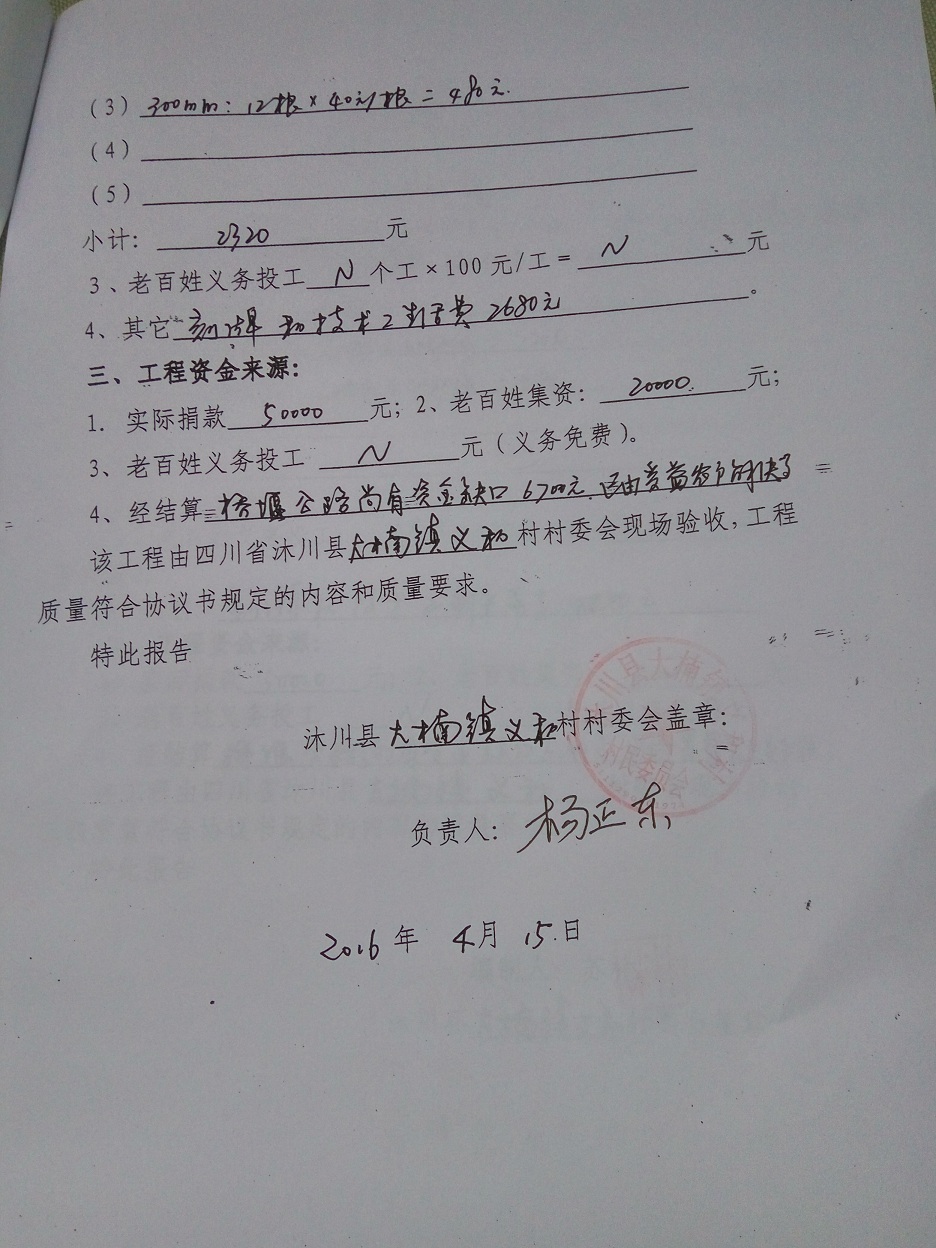 (3) 300mm: 12根×40元/根=480元.
(4)
(5)
小计: 2320 元
3、老百姓义务投工 N 个工×100元/工= N 元
4、其它 刻碑和技术工生活费2680元。
三、工程资金来源:
1. 实际捐款 50000 元; 2、老百姓集资: 20000. 元;
3、老百姓义务投工 N 元(义务免费)。
4、经结算 桥堰公路尚有资金缺口6700元, 已由受益农户解决了
该工程由四川省沐川县大楠镇义和村村委会现场验收,工程
质量符合协议书规定的内容和质量要求。
特此报告
沐川县 大楠镇义和村村委会盖章:
村民委员会
负责人: 杨正东
2016年 4月 15.日